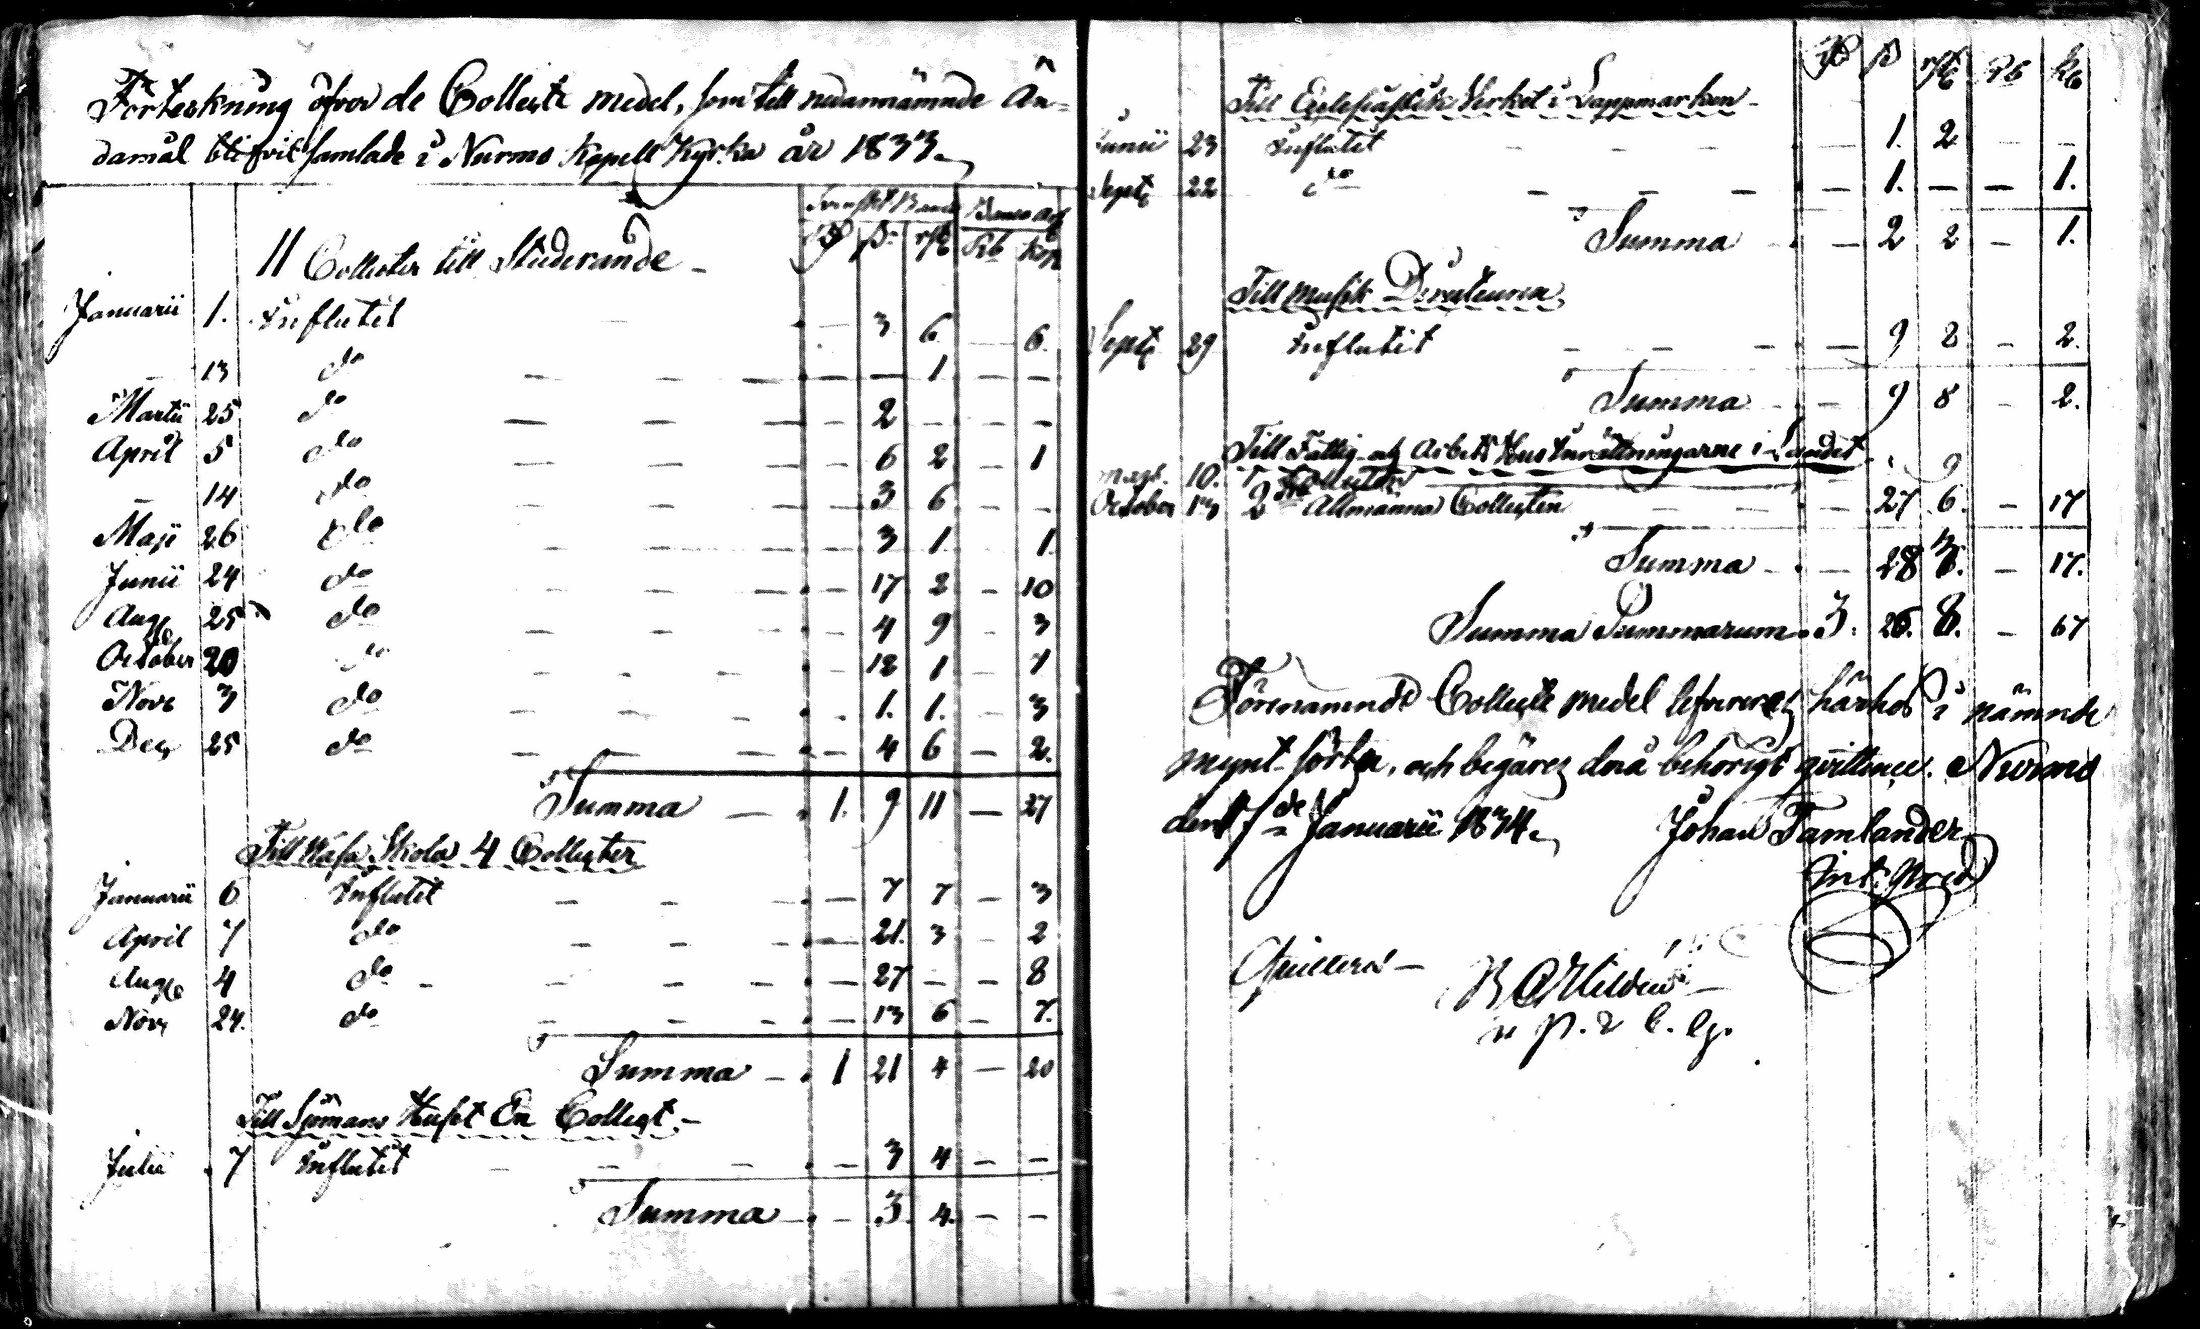 Förteckning öfver de Collect medel, som till nedannämnde Än-
damål blifvit samlade i Nurmo Kapell Kyrka år 1833.
Svenskt Banco Banco Ass
Rd s rst Rb kop
11 Collecter till Studerande -
Januarii 1. Influtit — 3 6 — 6.
— 13 do — — 1 — —
Martii 25 do — 2 — — —
April 5 do — 6 2 — 1
— 14 do — 3 6 — —
Maji 26 do — 3 1 1
Junii 24 do — 17 2 — 10
Aug 25 do — 4 9 — 3
October 20 do — 12 1 — 1
Nov 3 do — 1. 1. — 3
Dec 25 do — 4 6 — 2.
Summa — 1. 9 11 — 27
Till Wasa Skola 4 Collecter
Januarii 6 Influtit — 7 7 — 3
April 7 do — 21. 3 — 2
Aug 4 do — 27 — — 8
Nov 24. do — 13 6 — 7.
Summa — 1 21 4 — 20
Till Sjömans Huset En Collect. -
Julii 7 Influtit — 3 4 — —
Summa — 3 4 — —
Rd s rst Rb kc
Till Ecclesiastik Verket i Lappmarken -
Junii 23 Influtit — 1. 2 — —
Sept 22 do — 1. — — 1.
Summa — 2 2 — 1.
Till Musik Directeuren,
Sept 29 Influtit — 9 8 — 2.
Summa — 9 8 — 2.
Till Fattig och Arbets Hus Inrättningarne i Landet
10. 1 Collecten 9
October 13 2 Allmänna Collecten — 27 6. — 17
Summa — 28 3. — 17.
Summa Summarum 3. 26. 8. — 67
Förenämnde Collect medel levereras härhos i nämnde
mynt sorter, och begäres derå behörigt qvittence. Nurmo
den 7de Januarii 1834. Johan Tamlander
Qvitteras —